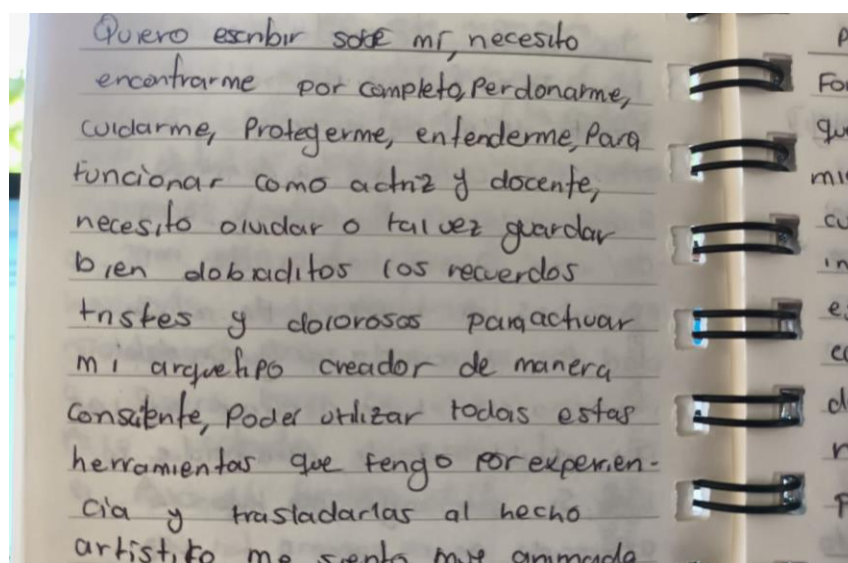 Quiero escribir sobre mí, necesito
encontrarme por completo, Perdonarme,
cuidarme, Protegerme, entenderme, Para
funcionar como actriz y docente,
necesito olvidar o tal vez guardar
bien dobladitos los recuerdos
tristes y dolorosos para activar
mi arquetipo creador de manera
consciente, Poder utilizar todas estas
herramientas que tengo por experien-
cia y trasladarlas al hecho
artístico me siento muy animada